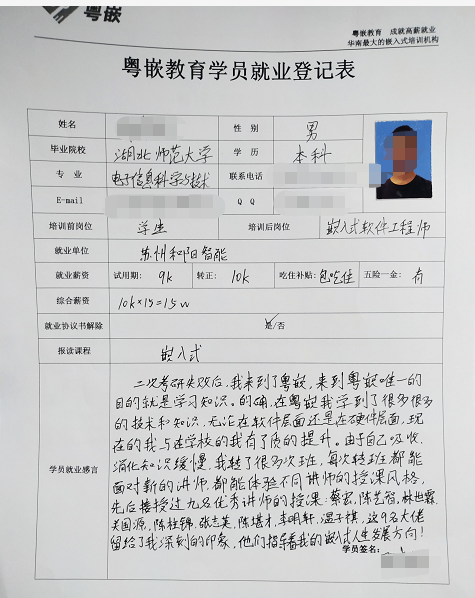 粤嵌
粤嵌教育 成就高薪就业
华南最大的嵌入式培训机构
粤嵌教育学员就业登记表
姓名 性别 男
毕业院校 湖北师范大学 学历 本科
专业 电子信息科学与技术 联系电话
E-mail QQ
培训前岗位 学生 培训后岗位 嵌入式软件工程师
就业单位 苏州和阳智能
就业薪资 试用期: 9k 转正: 10k 吃住补贴: 包吃住 五险一金: 有
综合薪资 10k×15=15w
就业协议书解除 是/否
报读课程 嵌入式
学员就业感言
二次考研失败后,我来到了粤嵌,来到粤嵌唯一的
目的就是学习知识。的确,在粤嵌我学到了很多很多
的技术和知识,无论在软件层面还是在硬件层面,现
在的我与在学校的我有了质的提升。由于自己吸收、
消化知识缓慢,我转了很多次班,每次转班都能
面对新的讲师,都能体验不同讲师的授课风格,
先后接受过九名优秀讲师的授课:蔡宏,陈艺智,林世霖,
关国源,陈桂锦,张志英,陈堪才,李明轩,温子祺,这9名大佬
留给了我深刻的印象,他们指导着我的嵌入式人生发展方向!
学员签名: